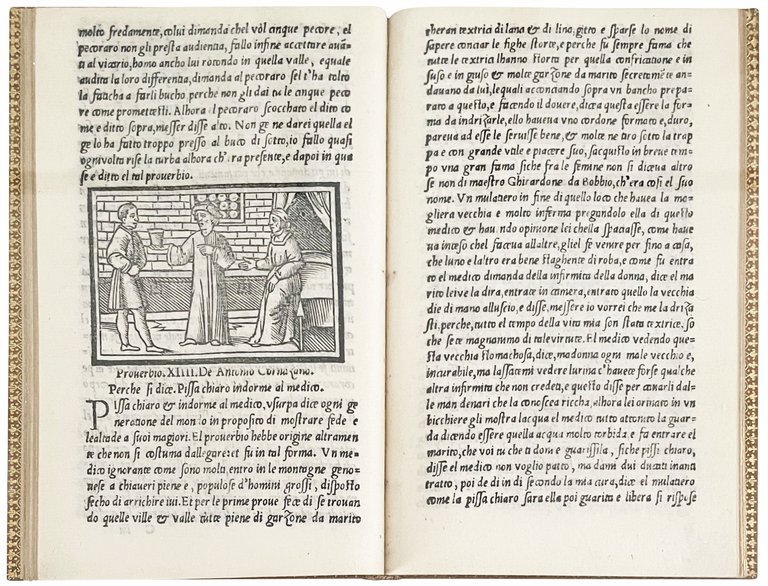 molto fredamente, colui dimanda chel vol cinque pecore, el
pecoraro non gli presta audientia, fallo infine accettare auã
ti al vicario, homo ancho lui rotondo in quella valle, equale
audita la loro differentia, dimanda al pecoraro sel t'ha tolto
la faticha a farli bucho perche non gli dai tu le cinque peco
re come promettesti. Alhora l pecoraro scoccato el dito co
me e ditto sopra, messer disse alto. Non ge ne darei quella el
ge lo ha fatto troppo presso al buco di sotto, io fallo quasi
ogni volta rise la turba alhora ch'era presente, e dapoi in qua
se e ditto el tal prouerbio.
Prouerbio. XIIII. De Antonio Cornazano.
Perche si dice. Pissa chiaro indorme al medico.
Pissa chiaro & indorme al medico, vsurpa dice ogni ge
neratione del mondo in proposito di mostrare fede e
lealtade a suoi magiori. El prouerbio hebbe origine altramen
te che non si costuma dallegare: et fu in tal forma. Vn me
dico ignorante come sono molti, entro le montagne geno
uese a chiaueri piene e, populose d'homini grossi, disposto
secho di arrichire iui. Et per le prime proue fece di se trouan
do quelle ville & valle tutte piene di garzone da marito
cheran textrici di lana & di lino, gitto e sparse lo nome di
sapere conciar le fighe storte, e perche fu sempre fama che
tutte le textrici hanno storta per quella confricatione e in
suso e in giuso & molte garzone da marito secretamẽte an
dauano da lui, le quali acconciando sopra vn bancho prepara
to a questo, e facendo il douere, dicea questa essere la for
ma da indrizarle, ello haueua vno cordone formato e, duro,
pareua ad esse le seruisse bene, & molte ne tiro sotto la trap
pa e con grande vtile e piacere suo, sacquisto in breue tem
po vna gran fama si che fra le femine non si diceua altro
se non di maestro Ghirardone da Bobbio, ch'era cosi el suo
nome. Vn mulatiero in fine di quello loco che hauea la mo
gliera vecchia e molto inferma pregandolo ella di questo
medico & hauendo opinione lei chella spaciasse, come haue
ua inteso chel faceua allaltre, gliel fe venire per fino a casa,
che luno e laltro era bene staghente di roba, e come fu entra
to el medico dimanda della infirmita della donna, dice el ma
rito lei ve la dira, entrate in camera, entrato quello la vecchia
die di mano alluscio, e disse, messere io vorrei che me la driza
sti, perche, tutto el tempo della vita mia son stata textrice, so
che sete magnanimo di tale virtute. El medico vedendo que
sta vecchia stomachosa, dice, madonna ogni male vecchio e,
incurabile, ma lassatemi vedere lurina c'hauete forse qualche
altra infirmita che non credeti, e questo disse per cauarli dal
le man denari che la conoscea riccha, alhora lei orinato in vn
bicchiere gli mostra lacqua el medico tutto attonito la guar
da dicendo essere quella acqua molto torbida e fa entrare el
marito, che voi tu che ti doni e guariscila, fiche pissi chiaro,
disse el medico non voglio patto, ma dami dui ducati inanti
tratto, poi de di in di secondo la mia cura, dice el mulatiero
come la pissa chiaro sara ella poi guarita e libera si rispose